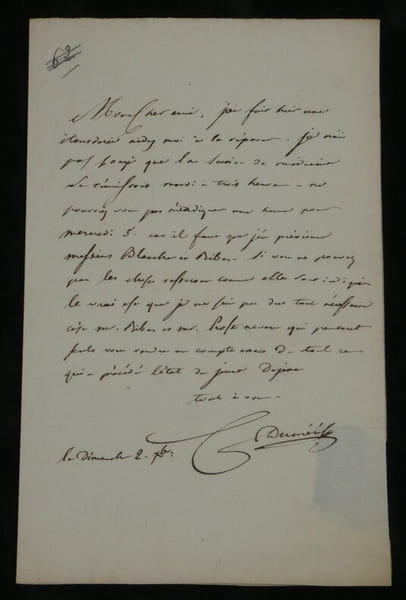 Mon cher ami, j'ai fait hier une
étourderie aidez moi à la réparer. Je n'ai
pas songé que la de médecine
se réunissoit mardi à trois heures. ne
pourriez vous pas m'indiquer une heure pour
mercredi 5. car il faut que j'en prévienne
messieurs Blanche et Ribes. Si vous ne pouvez
pas les choses resteront comme elles sont indiquées
le vrai est que je ne suis pas du tout nécessaire
c'est mr. Ribes et mr. neveu qui peuvent
seuls vous rendre un compte exact de tout ce
qui a précédé l'état de
tout à vous
C Duméril
le Dimanche 2. 7bre: